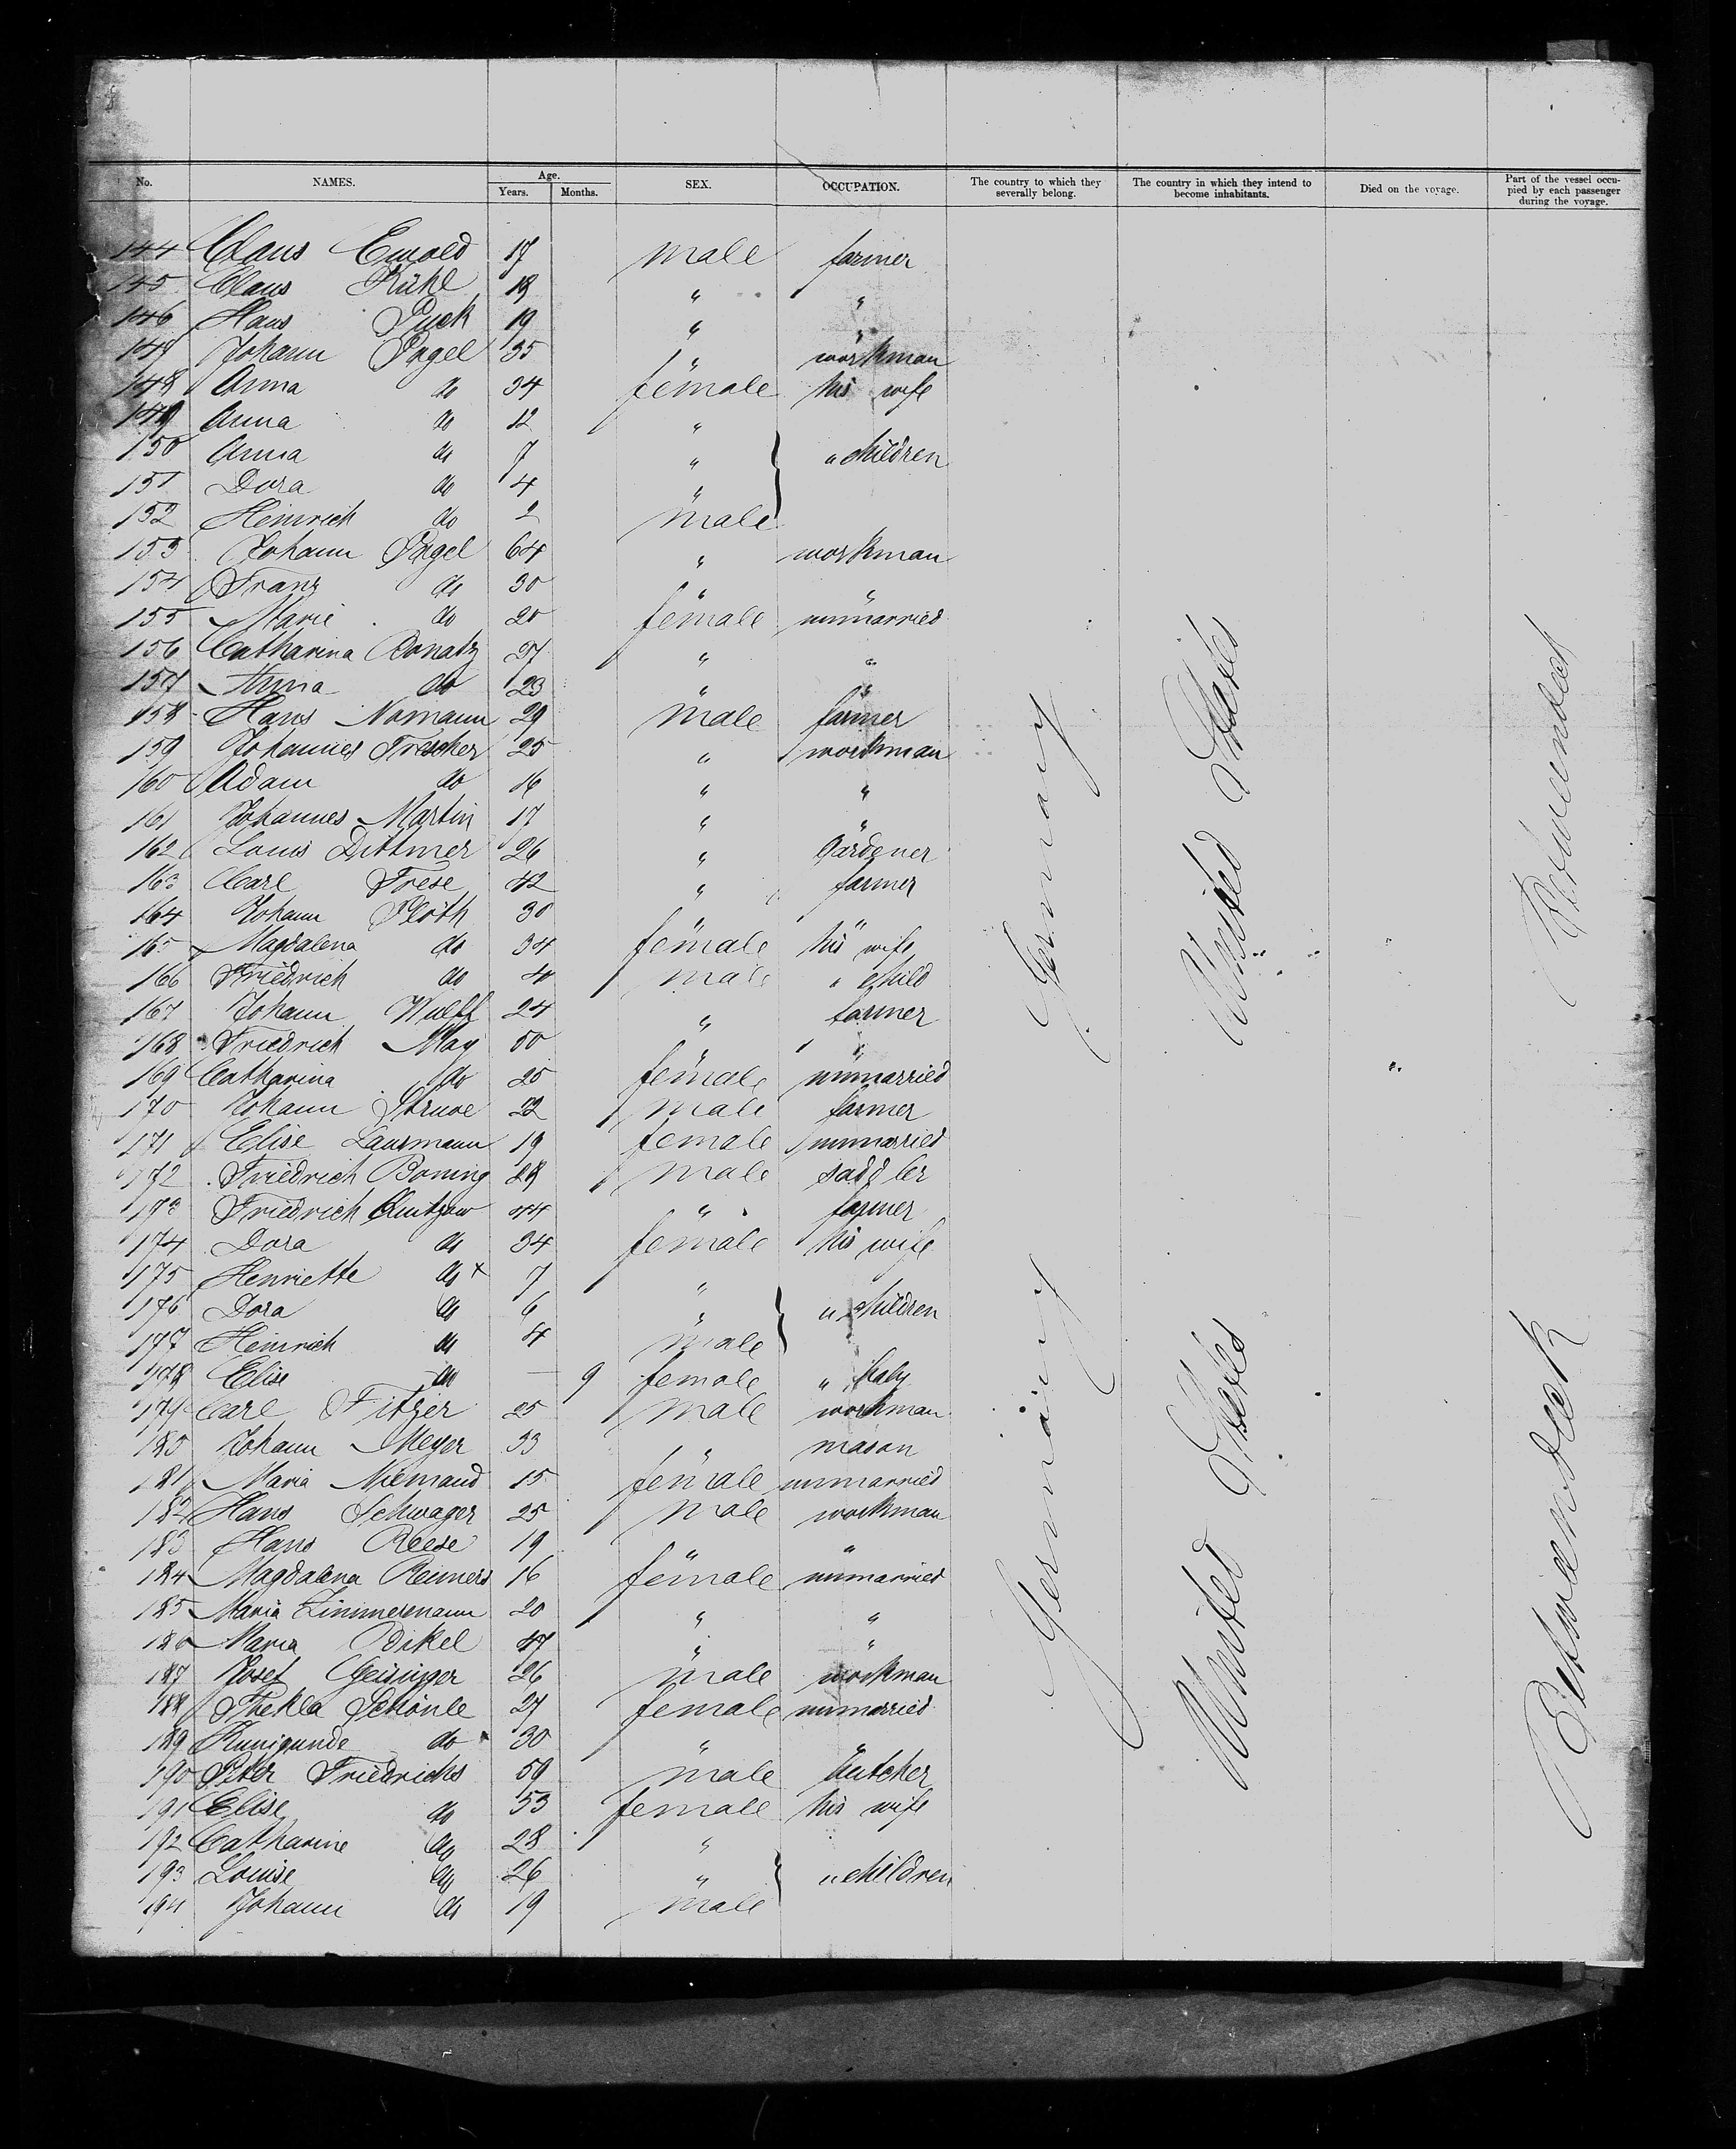 No. NAMES. Age. Years. Months. SEX. OCCUPATION. The country to which they severally belong. The country in which they intend to become inhabitants. Died on the voyage. Part of the vessel occupied by each passenger during the voyage.
144 Claus Ewold 17 male farmer
145 Claus Kühl 18 " "
146 Hans Puck 19 " "
147 Johann Pagel 35 " workman
148 Anna do 34 female his wife
149 Anna do 12 "
150 Anna do 7 " " children
151 Dora do 4 "
152 Heinrich do 2 male
153 Johann Pagel 64 " workman
154 Franz do 30 " "
155 Marie do 20 female unmarried
156 Catharina Donatz 27 " "
157 Anna do 23 " "
158 Hans Nomann 29 male farmer
159 Johannes Trescher 25 " workman
160 Adam do 16 " "
161 Johannes Martin 17 " "
162 Louis Dittmer 26 " Gardener
163 Carl Frese 42 " farmer
164 Johann Plöth 30 " "
165 Magdalena do 34 female his wife
166 Friedrich do 4 male " child
167 Johann Wulff 24 " farmer
168 Friedrich May 50 " "
169 Catharina do 25 female unmarried
170 Johann Struve 22 male farmer
171 Elise Lausmann 19 female unmarried
172 Friedrich Boning 28 male saddler
173 Friedrich 44 " farmer
174 Dora do 34 female his wife
175 Henriette do x 7 "
176 Dora do 6 " " children
177 Heinrich do 4 male
178 Elise do — 9 female " baby
179 Carl Fitzer 25 male workman
180 Johann Meyer 33 " mason
181 Maria Niemand 15 female unmarried
182 Hans Schwager 25 male workman
183 Hans Reese 19 " "
184 Magdalena Reimers 16 female unmarried
185 Maria Zimmermann 20 " "
186 Maria Bikel 47 " "
187 Josef Geisinger 26 male workman
188 Thekla Schönle 27 female unmarried
189 Kunigunde do 30 " "
190 Peter Friedrichs 59 male butcher
191 Elise do 53 female his wife
192 Catharine do 28 "
193 Louise do 26 " " children
194 Johann do 19 male
Germany
United States
Betweendeck
Germany
United States
Betweendeck